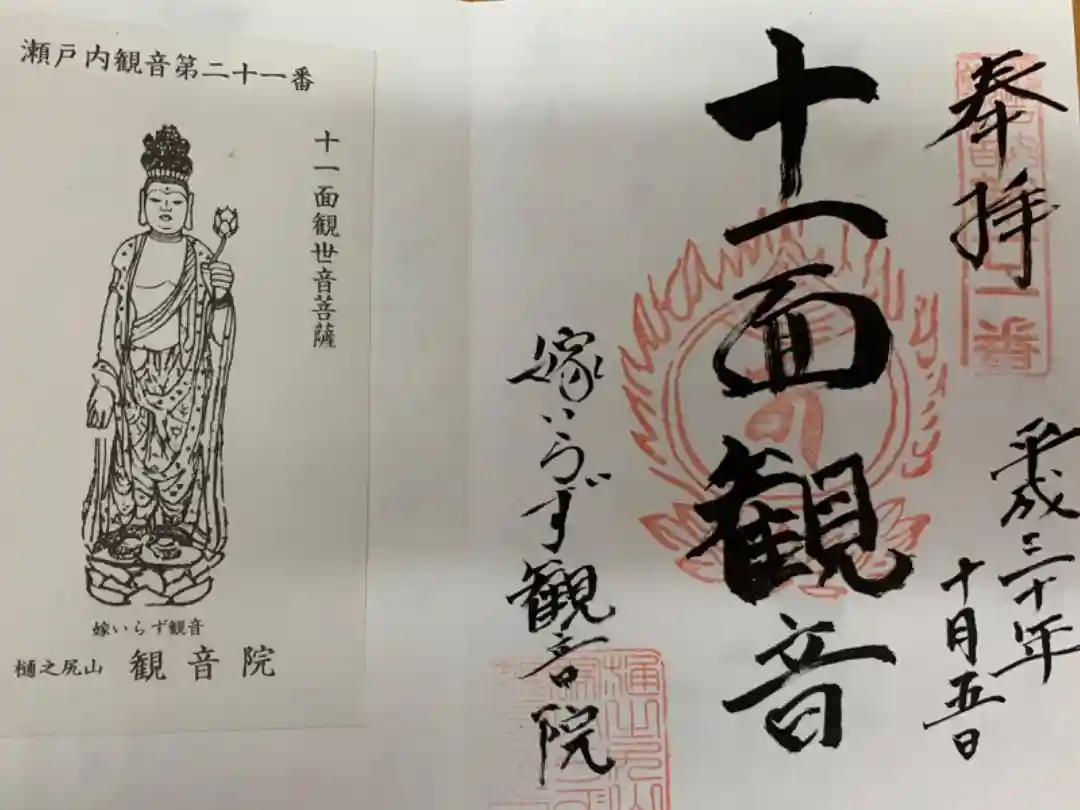 瀬戸内観音第二十一番
十一面観世音菩薩
嫁いらず観音
樋之尻山 観音院
奉拝
平成三十年
十月五日
十一面観音
嫁いらず観音院